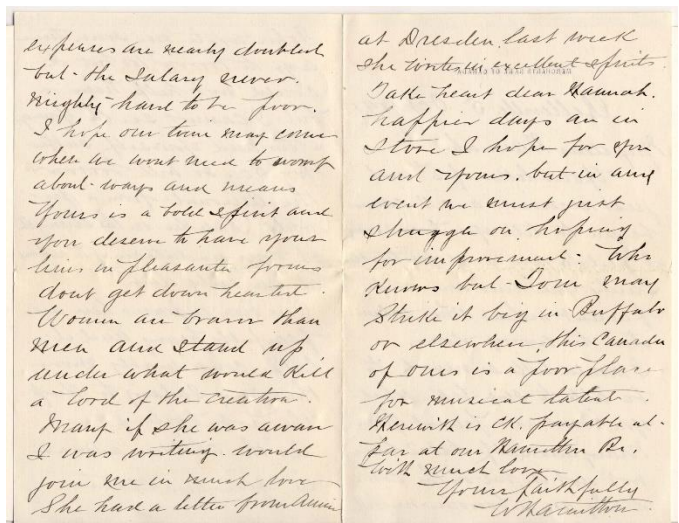 expenses are nearly doubled
but the salary never.
Mighty hard to be poor.
I hope our turn may come
when we wont need to worry
about ways and means
Yours is a bold spirit and
you deserve to have your
lines in pleasanter forms
dont get down hearted.
Women are braver than
men and stand up
under what would kill
a lord of the creation.
Mary if she was aware
I was writing would
join me in much love
She had a letter from Annie
at Dresden last week
she writes in excellent spirits.
Take heart dear Hannah.
happier days are in
store I hope for you
and yours. but in any
event we must just
struggle on hoping
for improvement. Who
knows but Tom may
strike it big in Buffalo
or elsewhere, this Canada
of ours is a poor place
for musical talent.
Herewith is ck. payable at
par at our Hamilton Br.
With much love
Yours faithfully
Hamilton